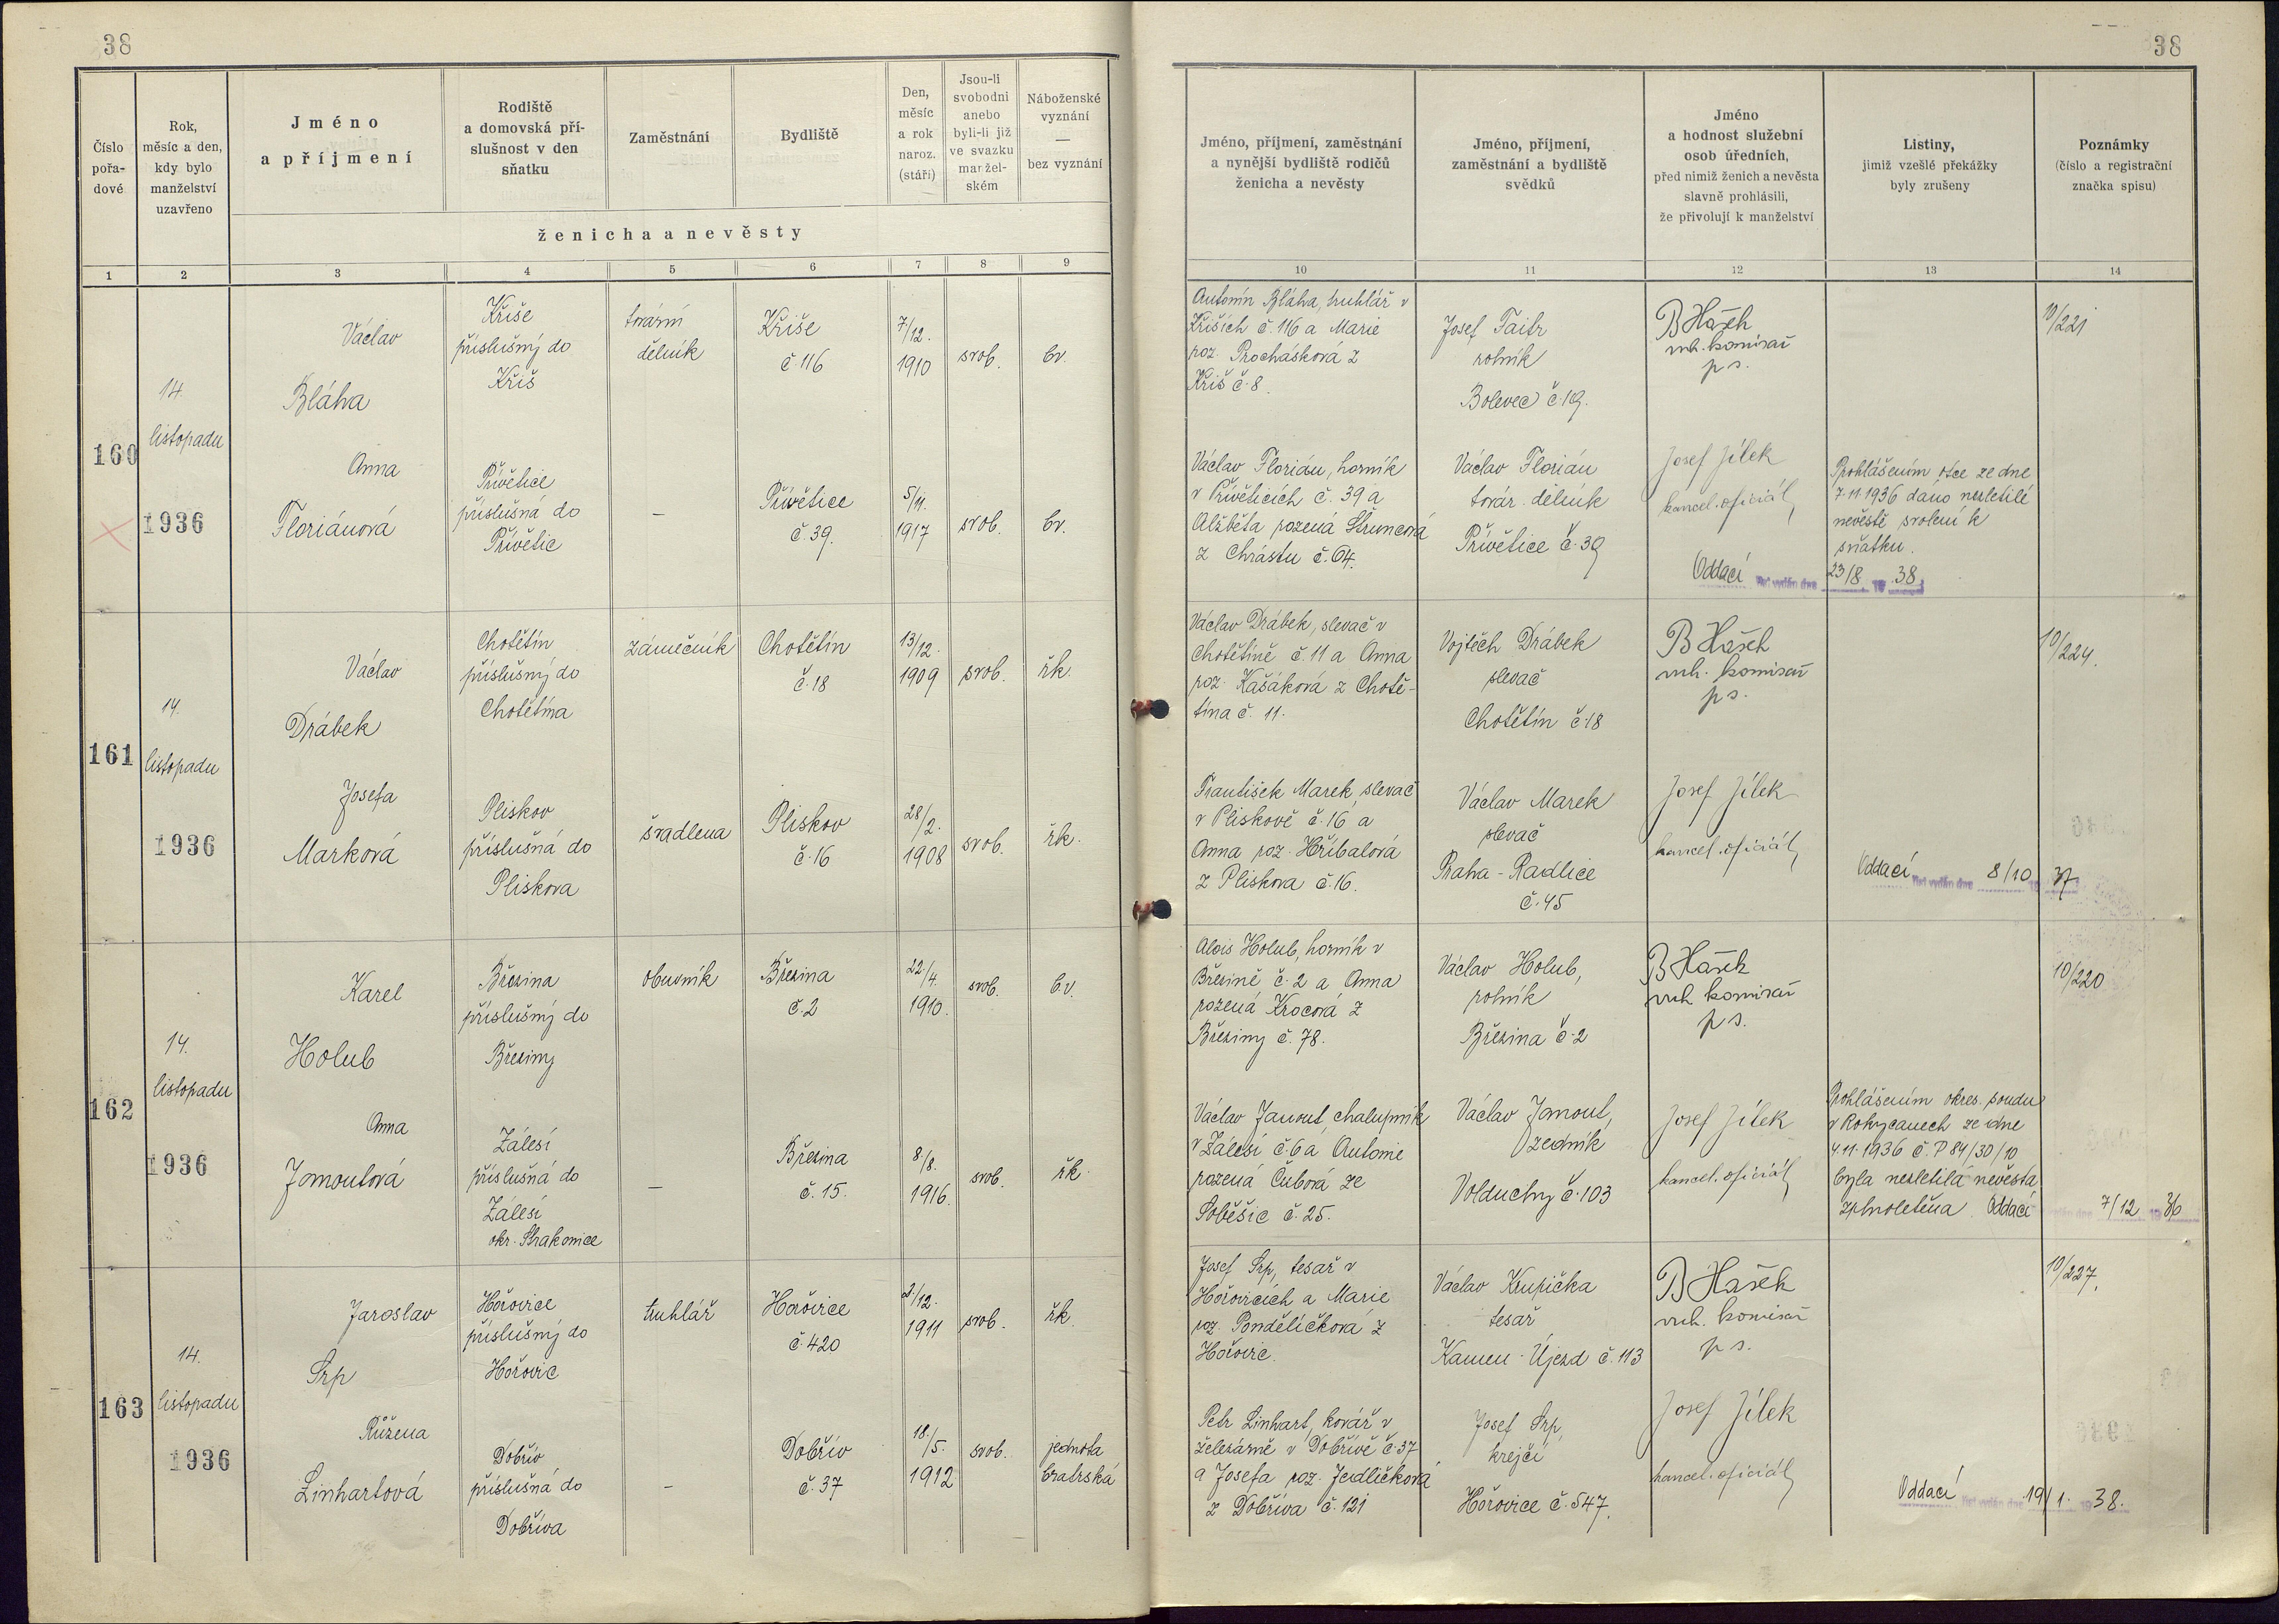 38
38
Číslo
pořa-
dové
Rok,
měsíc a den,
kdy bylo
manželství
uzavřeno
Jméno
a příjmení
Rodiště
a domovská pří-
slušnost v den
sňatku
Zaměstnání
Bydliště
Den,
měsíc
a rok
naroz.
(stáří)
Jsou-li
svobodni
anebo
byli-li již
ve svazku
manžel-
ském
Náboženské
vyznání
—
bez vyznání
ženicha a nevěsty
Jméno, příjmení, zaměstnání
a nynější bydliště rodičů
ženicha a nevěsty
Jméno, příjmení,
zaměstnání a bydliště
svědků
Jméno
a hodnost služební
osob úředních,
před nimiž ženich a nevěsta
slavně prohlásili,
že přivolují k manželství
Listiny,
jimiž vzešlé překážky
byly zrušeny
Poznámky
(číslo a registrační
značka spisu)
1 2 3 4 5 6 7 8 9 10 11 12 13 14
160
14.
listopadu
1936
Václav
Bláha
Kříše
příslušný do
Kříš
tovární
dělník
Kříše
č. 116
7/12.
1910
svob.
bv.
Antonín Bláha, truhlář v
Kříších č. 116 a Marie
roz. Prochásková z
Kříš č. 8.
Josef Faitr
rolník
Bolevec č. 19.
B Hašek
vrch. komisař
p s.
10/221
Anna
Floriánová
Přívětice
příslušná do
Přívětic
—
Přívětice
č. 39.
5/11.
1917
svob.
bv.
Václav Florián, horník
v Příveticích č. 39 a
Alžběta rozená Štruncová
z Chrástu č. 64.
Václav Florián
továr. dělník
Přívětice č. 39
Josef Jílek
kancel. oficiál
Prohlášením otce ze dne
7. 11. 1936 dáno nezletilé
nevěstě svolení k
sňatku.
Oddací list vydán dne 23/8 19 38
161
14.
listopadu
1936
Václav
Drábek
Chotětín
příslušný do
Chotětína
zámečník
Chotětín
č. 18
13/12.
1909
svob.
řk.
Václav Drábek, slevač v
Chotětíně č. 11 a Anna
roz. Kašáková z Chotě-
tína č. 11.
Vojtěch Drábek
slevač
Chotětín č. 18
B Hašek
vrch. komisař
p s.
10/224.
Josefa
Marková
Pliskov
příslušná do
Pliskova
švadlena
Pliskov
č. 16
28/2.
1908
svob.
řk.
František Marek, slevač
v Pliskově č. 16 a
Anna roz. Hříbalová
z Pliskova č. 16.
Václav Marek
slevač
Praha - Radlice
č. 45
Josef Jílek
kancel. oficiál
Oddací list vydán dne 8/10 19 37
162
14.
listopadu
1936
Karel
Holub
Březina
příslušný do
Březiny
obuvník
Březina
č. 2
22./4.
1910.
svob.
b.v.
Alois Holub, horník v
Březině č. 2 a Anna
rozená Krocová z
Březiny č. 78.
Václav Holub,
rolník
Březina č. 2
B Hašek
vrch. komisař
p s.
10/220
Anna
Janoutová
Zálesí
příslušná do
Zálesí
okr. Strakonice
—
Březina
č. 15.
8./8.
1916.
svob.
řk.
Václav Janout, chalupník
v Zálesí č. 6 a Antonie
rozená Čubová ze
Soběšic č. 25.
Václav Janout,
zedník
Volduchy č. 103
Josef Jílek
kancel. oficiál
Prohlášením okres. soudu
v Rokycanech ze dne
4. 11. 1936 č. P 84/30/10
byla nezletilá nevěsta
zplnoletěna. Oddací 7/12 1936
163
14.
listopadu
1936
Jaroslav
Srp
Hořovice
příslušný do
Hořovic
truhlář
Hořovice
č. 420
2/12.
1911
svob.
řk.
Josef Srp, tesař v
Hořovicích a Marie
roz. Pondělíčková z
Hořovic.
Václav Krupička
tesař
Kamen. Újezd č. 113
B Hašek
vrch. komisař
p s.
10/227.
Růžena
Linhartová
Dobřív
příslušná do
Dobříva
—
Dobřív
č. 37
18./5.
1912
svob.
jednota
bratrská
Petr Linhart, kovář v
železárně v Dobřívě č. 37
a Josefa roz. Jedličková
z Dobříva č. 121
Josef Srp,
krejčí
Hořovice č. 547.
Josef Jílek
kancel. oficiál
Oddací list vydán dne 19/1. 1938.